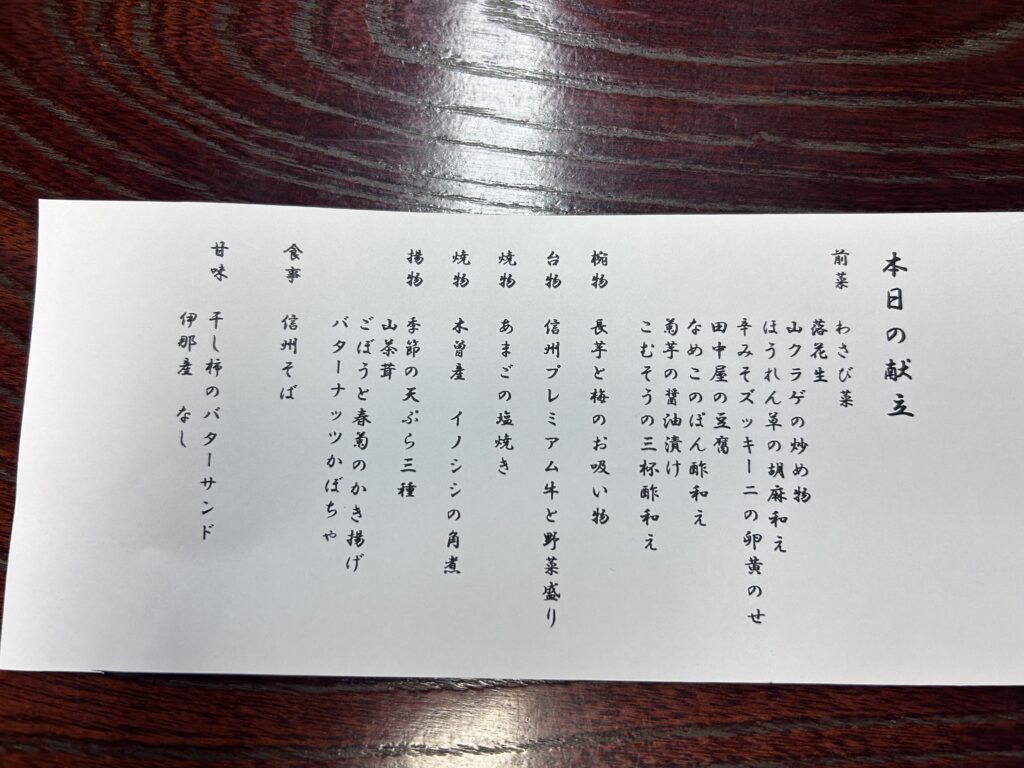 本日の献立
前菜 わさび菜
落花生
山クラゲの炒め物
ほうれん草の胡麻和え
辛みそズッキーニの卵黄のせ
田中屋の豆腐
なめこのぽん酢和え
菊芋の醤油漬け
こむそうの三杯酢和え
椀物 長芋と梅のお吸い物
台物 信州プレミアム牛と野菜盛り
焼物 あまごの塩焼き
焼物 木曽産 イノシシの角煮
揚物 季節の天ぷら三種
山茶茸
ごぼうと春菊のかき揚げ
バターナッツかぼちゃ
食事 信州そば
甘味 干し柿のバターサンド
伊那産 なし